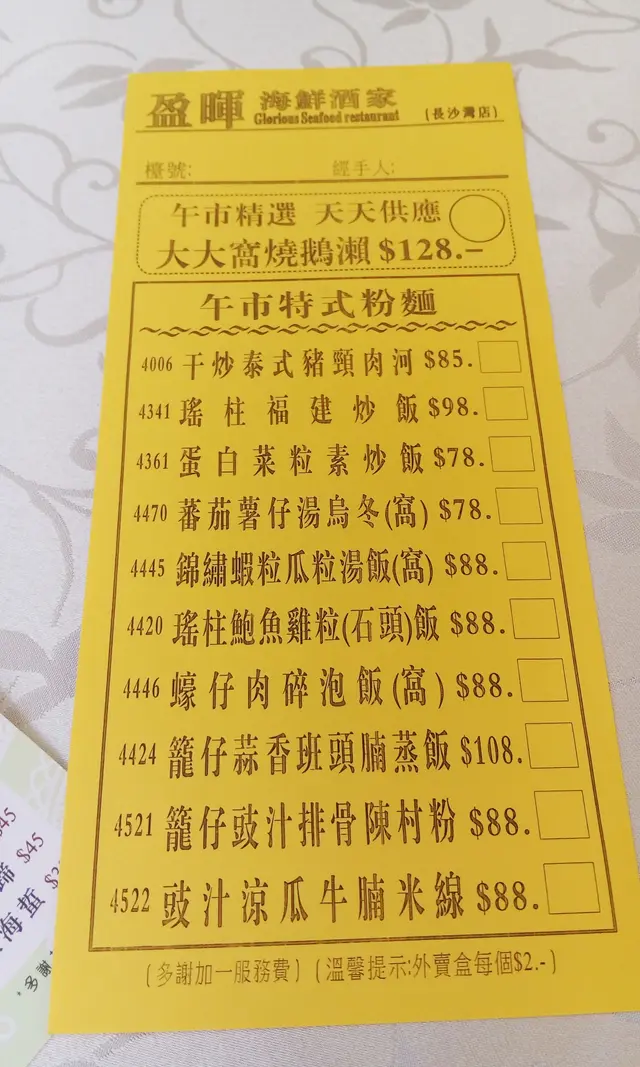 盈暉 海鮮酒家 (長沙灣店)
Glorious Seafood restaurant
檯號: 經手人:
午市精選 天天供應
大大窩燒鵝瀨 $128.-
午市特式粉麵
4006 干炒泰式豬頸肉河 $85.
4341 瑤柱福建炒飯 $98.
4361 蛋白菜粒素炒飯 $78.
4470 蕃茄薯仔湯烏冬(窩) $78.
4445 錦繡蝦粒瓜粒湯飯(窩) $88.
4420 瑤柱鮑魚雞粒(石頭)飯 $88.
4446 蠔仔肉碎泡飯(窩) $88.
4424 籠仔蒜香班頭腩蒸飯 $108.
4521 籠仔豉汁排骨陳村粉 $88.
4522 豉汁涼瓜牛腩米線 $88.
(多謝加一服務費) (溫馨提示:外賣盒每個$2.-)
蹄 $45
海蜇
多謝